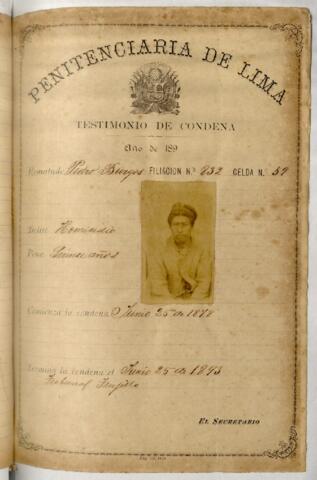 PENITENCIARIA DE LIMA
TESTIMONIO DE CONDENA
Año de 189
Rematado Pedro Burgos FILIACION N.º 832 CELDA N. 59
Delito Homicidio
Pena Quince años
Comienza la condena Junio 25 de 1878
Termina la condena el Junio 25 de 1893
Tribunal Trujillo
EL SECRETARIO